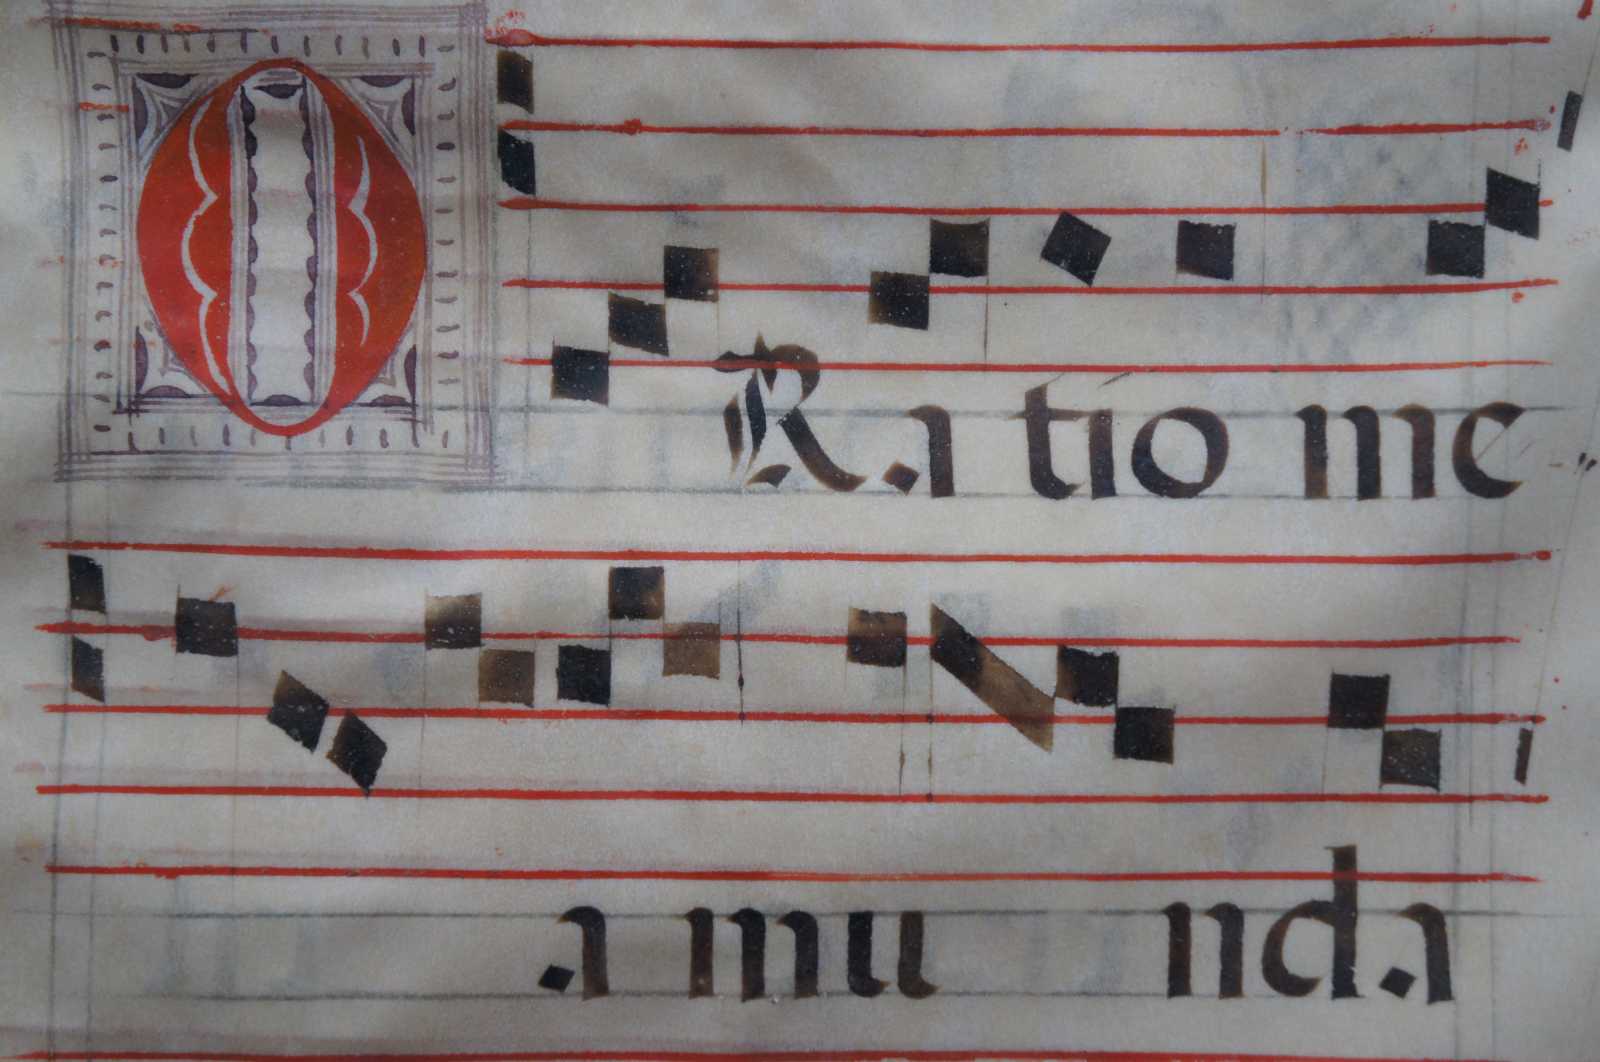 ORatio me
a munda